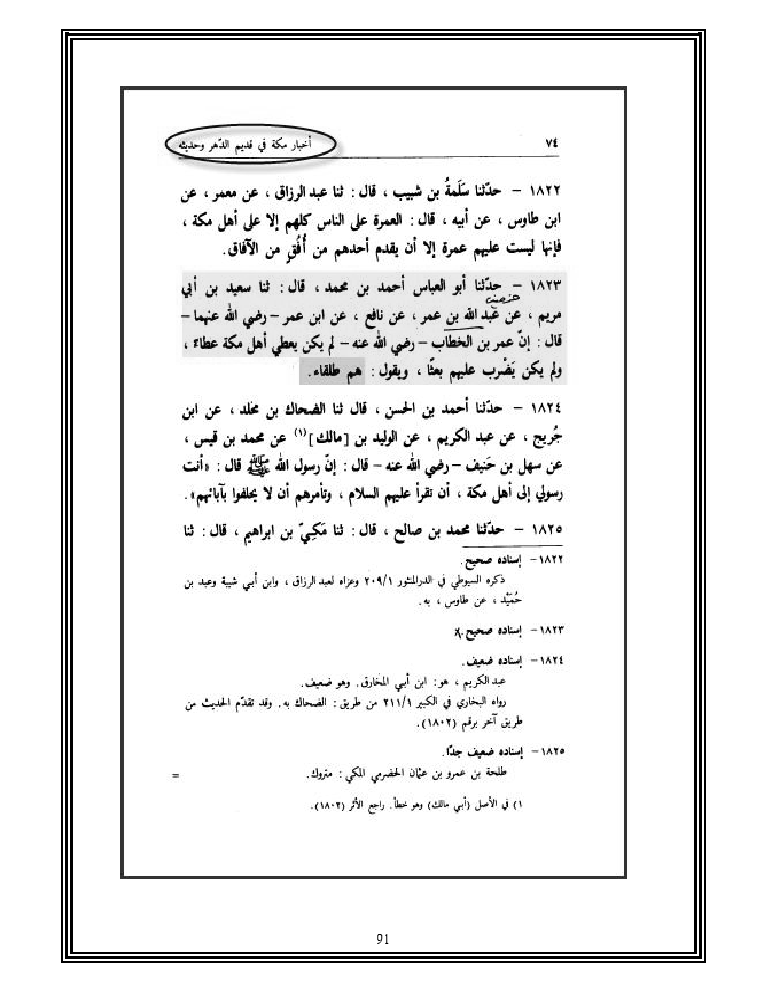 ٧٤
أخبار مكة في قديم الدّهر وحديثه
١٨٢٢ – حدّثنا سَلَمةُ بن شبيب ، قال : ثنا عبد الرزاق ، عن معمر ، عن
ابن طاوس ، عن أبيه ، قال : العمرة على الناس كلهم إلا على أهل مكة ،
فإنها ليست عليهم عمرة إلا أن يقدم أحدهم من أُفُقٍ من الآفاق .
١٨٢٣ – حدّثنا أبو العباس أحمد بن محمد ، قال : ثنا سعيد بن أبي
مريم ، عن عبد الله بن عمر ، عن نافع ، عن ابن عمر – رضي الله عنهما –
قال : إنّ عمر بن الخطاب – رضي الله عنه – لم يكن يعطي أهل مكة عطاءً ،
ولم يكن يَضْرب عليهم بعثًا ، ويقول : هم طلقاء .
١٨٢٤ – حدّثنا أحمد بن الحسن ، قال ثنا الضحاك بن مخلد ، عن ابن
جُريج ، عن عبد الكريم ، عن الوليد بن [مالك] (١) عن محمد بن قيس ،
عن سهل بن حَنيف – رضي الله عنه – قال : إنّ رسول الله ﷺ قال : «أنت
رسولي إلى أهل مكة ، أن تقرأ عليهم السلام ، وتأمرهم أن لا يحلفوا بآبائهم» .
١٨٢٥ – حدّثنا محمد بن صالح ، قال : ثنا مَكيّ بن ابراهيم ، قال : ثنا
١٨٢٢ – إسناده صحيح .
ذكره السيوطي في الدرالمنثور ٢٠٩/١ وعزاه لعبد الرزاق ، وابن أبي شيبة وعبد بن
حُمَيْد ، عن طاوس ، به .
١٨٢٣ – إسناده صحيح .
١٨٢٤ – إسناده ضعيف .
عبد الكريم ، هو : ابن أبي المخارق . وهو ضعيف .
رواه البخاري في الكبير ٢١١/٩ من طريق : الضحاك به . وقد تقدّم الحديث من
طريق آخر برقم (١٨٠٢) .
١٨٢٥ – إسناده ضعيف جدًا .
طلحة بن عمرو بن عثمان الحضرمي المكي : متروك .
=
١) في الأصل (أبي مالك) وهو خطأ . راجع الأثر (١٨٠٢) .
91